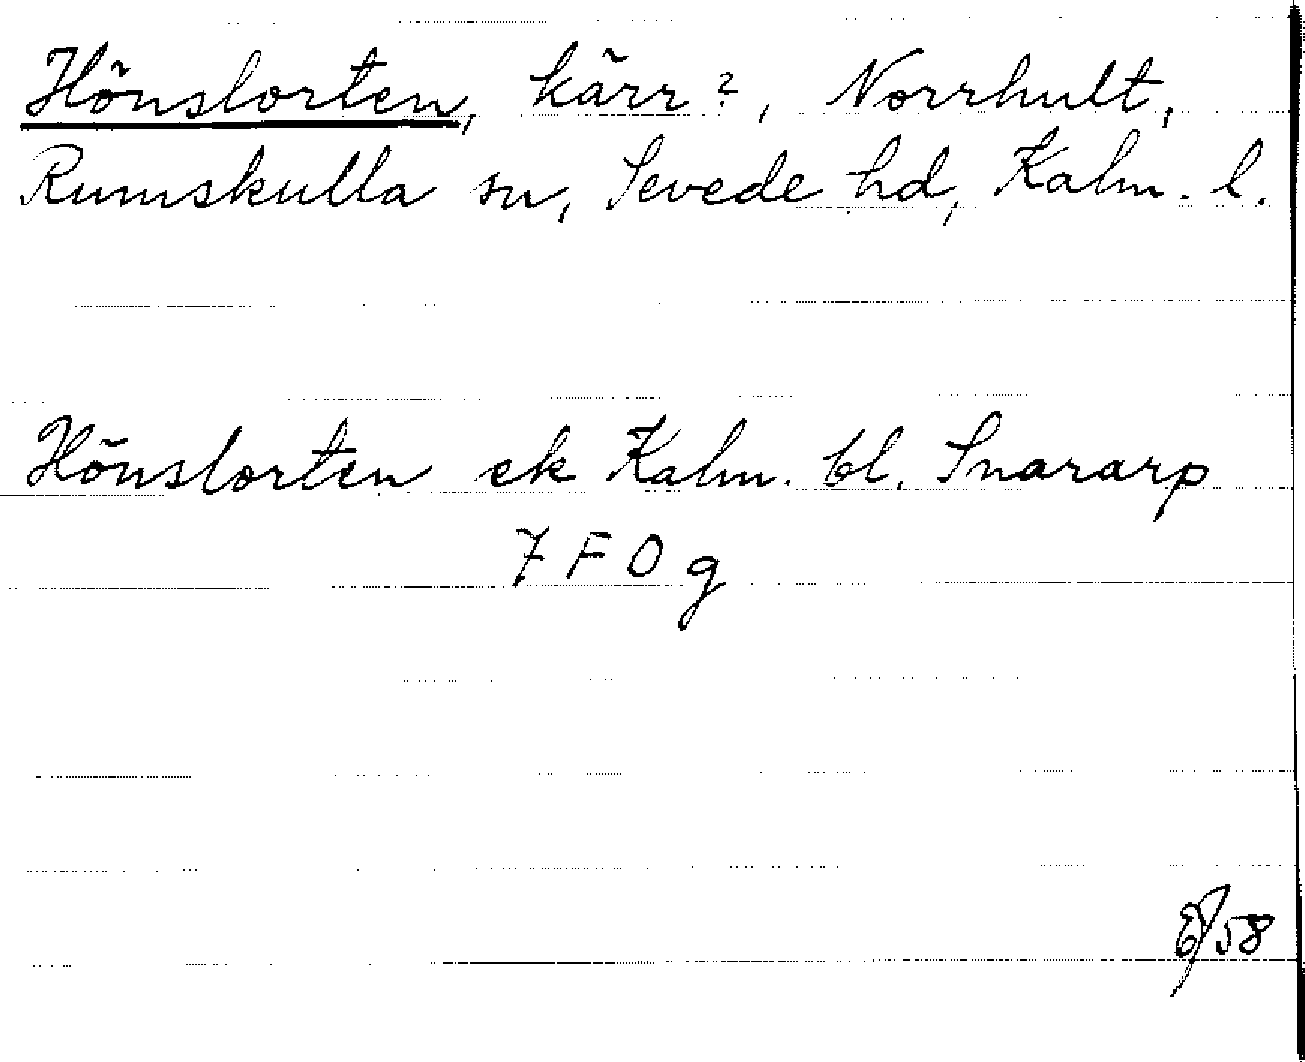 Hönslorten, kärr?, Norrhult,
Rumskulla sn, Sevede hd, Kalm. l.
Hönslorten ek Kalm. bl. Snararp
7 F 0 g